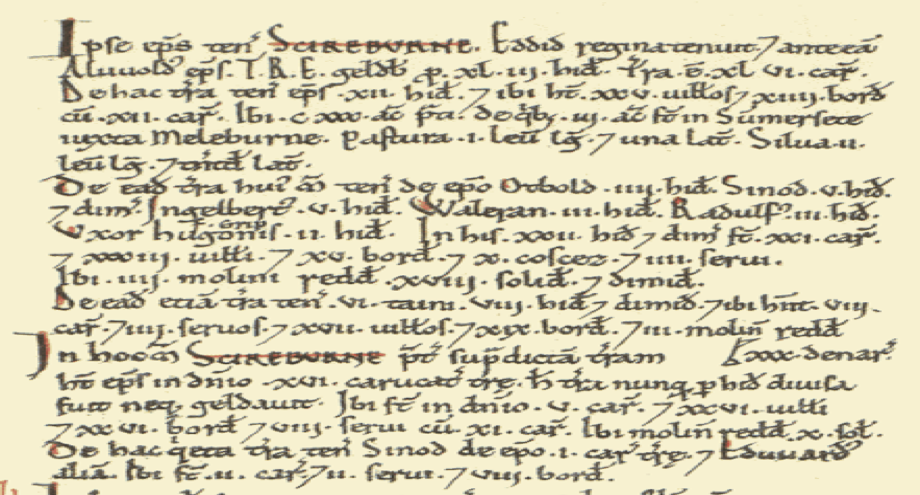 Ipse ep̄s ten̄ SCIREBURNE. Eddid regina tenuit. ⁊ ante eā
Aluuold' ep̄s. T.R.E. geldb̄ ꝓ. xl.iii. hid̄. T̄ra.ē. xl vi. car̄.
De hac t̄ra ten̄ ep̄s. xii. hid̄. ⁊ ibi ht̄. xxv. uilƚos ⁊ xiiii. bord̄
cū. xii. car̄. Ibi. c xxx. ac̄ p̄ti. de q̇bȝ. iii. ac̄ st̄ in Sumersete
iuxta Meleburne. Pastura. i. leu̅ lḡ. ⁊ una lat̄. Silua. ii.
leu̅ lḡ. ⁊ tn̄td̄ lat̄.
De ead̄ t̄ra hui' m̄ ten̄ de ep̄o Otbold. iiii. hid̄. Sinod. v. hid̄.
⁊ dim̄. Ingelbert'. v. hid̄. Waleran. iii. hid̄. Radulf'. iii. hid̄.
Vxor hugonis. ii. hid̄. In his. xxii. hid̄ ⁊ dim̄ st̄. xxi. car̄.
⁊ xxxiii. uilƚi. ⁊ xv. bord̄. ⁊ x. coscez. ⁊ iiii. serui.
Ibi. iiii. molini redd̄. xviii. solid̄. ⁊ dimid̄.
De ead̄ etiā t̄ra ten̄. vi. taini. viii. hid̄ ⁊ dimid̄. ⁊ ibi hn̄t. viii.
car̄. ⁊ iiii. seruos. ⁊ xvii. uilƚos. ⁊ xix. bord̄. ⁊ iii. molin̄ redd̄
xxx. denar̄.
In hoc m̄ SCIREBURNE p̄t' sup̄dictā t̄ram
ht̄ ep̄s in dn̄io. xvi. carucat̄ t̄rę. ħ t̄ra nunq̨ ꝑ hid̄ diuisa
fuit neq̨ geldauit. Ibi st̄ in dn̄io. v. car̄. ⁊ xxvi. uilƚi
⁊ xxvi. bord̄ ⁊ viii. serui cū. xi. car̄. Ibi molin̄ redd̄. x. sol̄.
De hac q̇eta t̄ra ten̄ Sinod de ep̄o. i. car̄ t̄rę. ⁊ Eduuard'
aliā. Ibi st̄. ii. car̄. ⁊ ii. serui. ⁊ viii. bord̄.